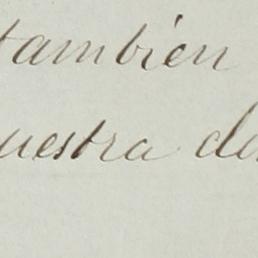 tambien
uestra de